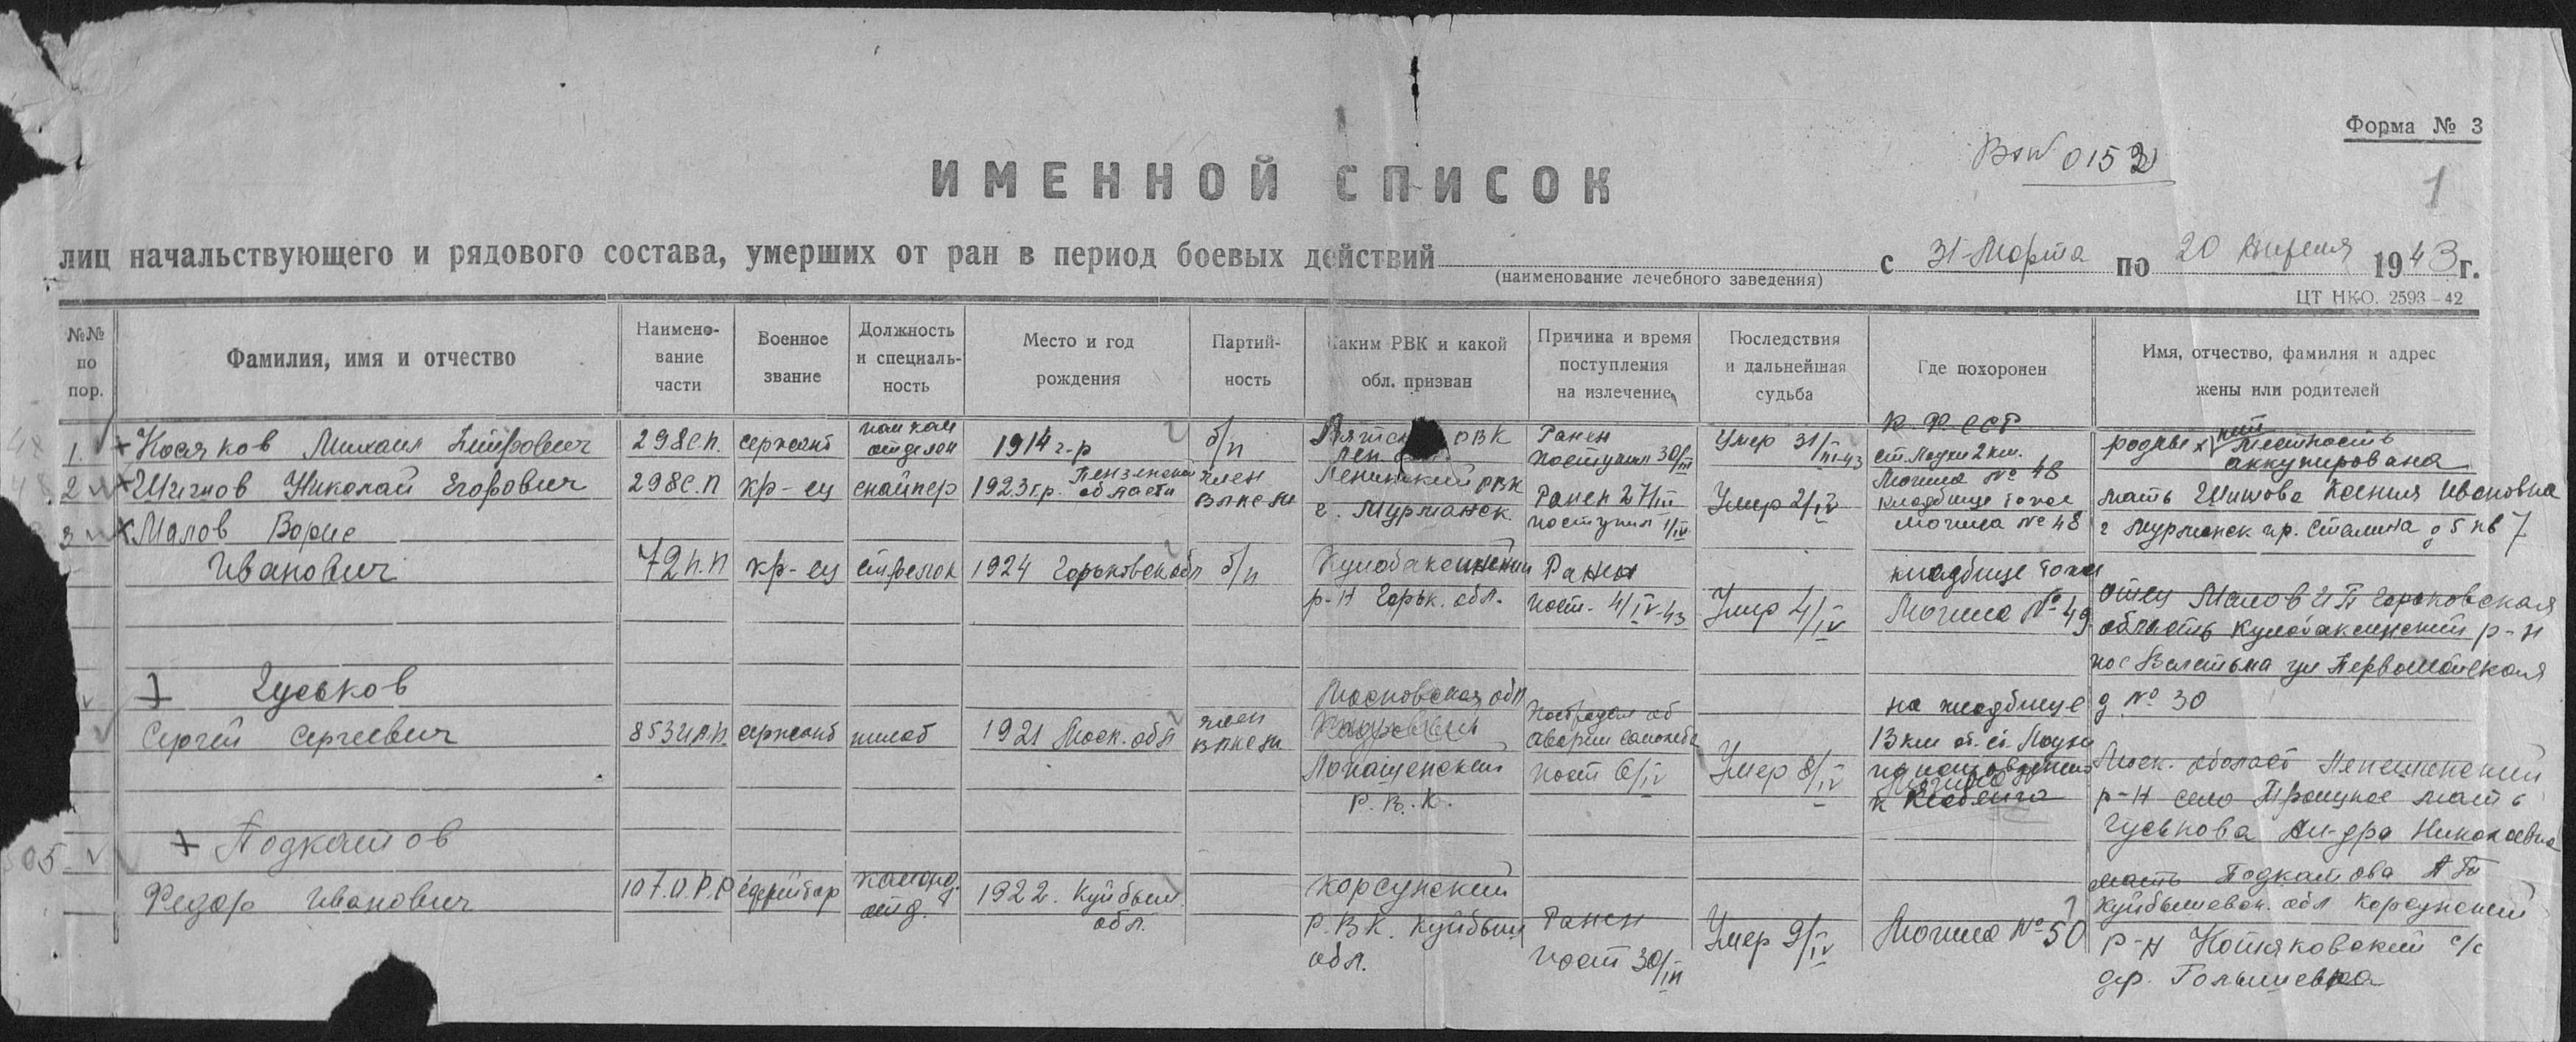 Форма № 3
Вх№ 0153
1
ИМЕННОЙ СПИСОК
лиц начальствующего и рядового состава, умерших от ран в период боевых действий с 31 Марта по 20 Апреля 1943 г.
(наименование лечебного заведения)
ЦТ НКО. 2593—42
№№ по пор.
Фамилия, имя и отчество
Наименование части
Военное звание
Должность и специальность
Место и год рождения
Партийность
Каким РВК и какой обл. призван
Причина и время поступления на излечение
Последствия и дальнейшая судьба
Где похоронен
Имя, отчество, фамилия и адрес жены или родителей
1. Косяков Михаил 298 с.п. сержант отделен 1914 г-р б/п РВК Ранен поступил 30/III Умер 31/III-43 К.Ф.ССР ст. Лоухи 2 км. Могила № 48 родные местность аккупирована
2 Шигнов Николай Егорович 298 с.п кр-ец снайпер 1923 г.р. Пензенской области член ВЛКСМ Ленинский РВК г. Мурманск. Ранен 27/III поступил 1/IV Умер 2/IV кладбище тоже могила № 48 мать Ксения Ивановна г Мурманск пр. Сталина д 5 кв 7
3 Малов Борис
Иванович 72 п.п кр-ец стрелок 1924 Горьковск обл б/п Кулебакский р-н Горьк. обл. Ранен пост. 4/IV-43 Умер 4/IV кладбище тоже Могила № 49 отец Малов И П Горьковская область р-н пос Велетьма ул Первомайская д № 30
Гуськов
Сергей Сергеевич 853 сержант пилот 1921 Моск. обл член ВЛКСМ Московская обл Р.В.К. Пострадал об аварии самолета пост 6/IV Умер 8/IV на кладбище 13 км от ст. Лоухи Моск. область р-н село Троицкое мать Гуськова Николаевна
5. Подкатов
Федор Иванович 107 О.Р.Р ефрейтор команд. отд. 1922. Куйбыш обл. Карсунский Р.В.К. Куйбыш обл. Ранен пост 30/III Умер 9/IV Могила № 50 мать Подкатова А П Куйбышевск. обл Карсунский р-н Котяковский с/с